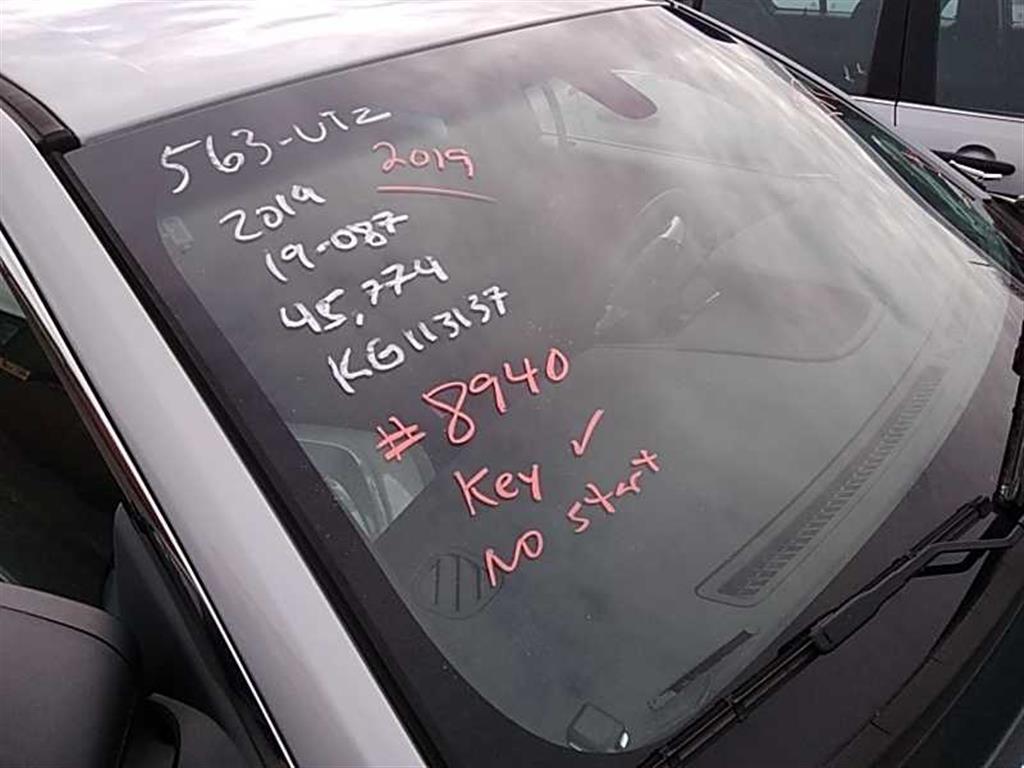 563-UTZ
2019
2019
19-087
45,774
KG113137
#8940
Key ✓
NO start